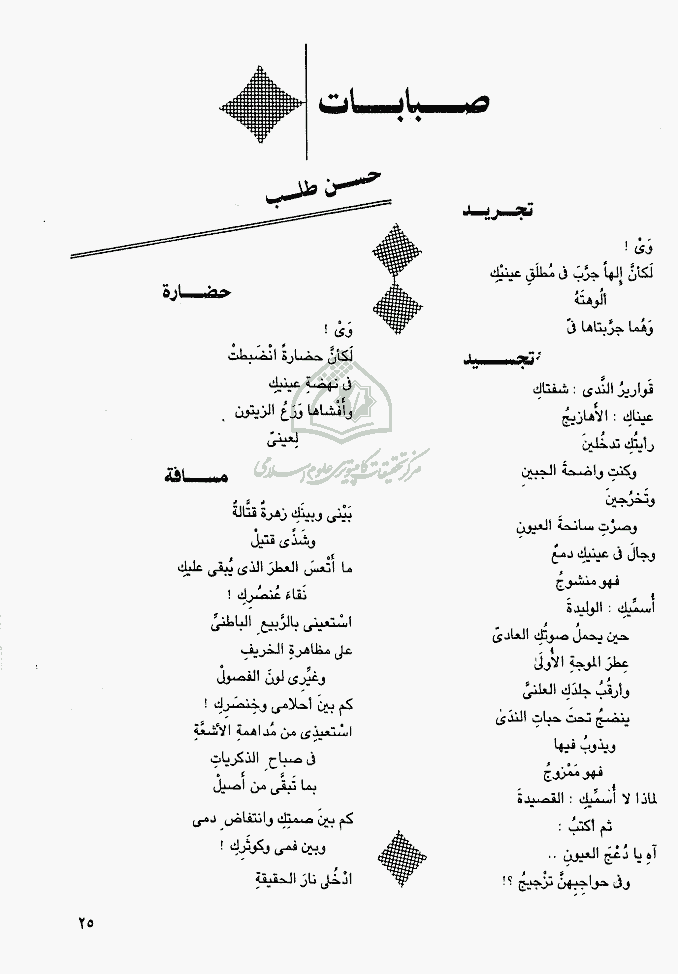 صـبـابـات
حسن طلب
تجريد
وَىْ !
لَكأنَّ إلهاً جرَّبَ فى مُطلَقِ عينيْكِ
الُوهتَهُ
وَهُما جرَّبتاها فىّ
تجسيد
قَواريرُ النَّدى : شفتاكِ
عيناكِ : الأهازيجُ
رأيتُكِ تدخُلينَ
وكنتِ واضحةَ الجبينِ
وتَخرُجينَ
وصرْتِ سانحةَ العيونِ
وجالَ فى عينيكِ دمعٌ
فهو منشوجُ
أُسمِّيكِ : الوليدةَ
حين يحملُ صوتُكِ العادىّ
عِطرَ الموجةِ الأُولَى
وأرقُبُ جلدَكِ العلنىَّ
ينضجُ تحتَ حباتِ الندَى
ويذوبُ فيها
فهو مَمْزوجُ
لماذا لا أُسَمِّيكِ : القصيدةَ
ثم أكتبُ :
آهِ يا دُعْجَ العيونِ ..
وفى حواجِبِهنَّ تزْجيجُ ؟!
حضارة
وَىْ !
لَكأنَّ حضارةً انْضَبطتْ
فى نهضةِ عينيكِ
وأفْشاها وَزَعُ الزيتون .
لِعينىّ
مسافة
بَيْنى وبينَكِ زهرةٌ قتَّالةٌ
وشَذًى قتيلْ
ما أَتْعسَ العطرَ الذى يُبقى عليكِ
نَقاءَ عُنصُرِكِ !
اسْتعينى بالرَّبيعِ الباطنىِّ
على مظاهرةِ الخريفِ
وغيِّرِى لونَ الفصولْ
كم بينَ أحلامى وخِنصَرِكِ !
اسْتعيذِى من مُداهمةِ الأشعَّةِ
فى صباحِ الذكرياتِ
بما تَبقَّى من أصيلْ
كم بينَ صمتِكِ وانتفاضِ دمى
وبين فمى وكوثَرِكِ !
ادْخُلى نارَ الحقيقةِ
مركز تحقيقات كامپيوترى علوم اسلامى
٢٥